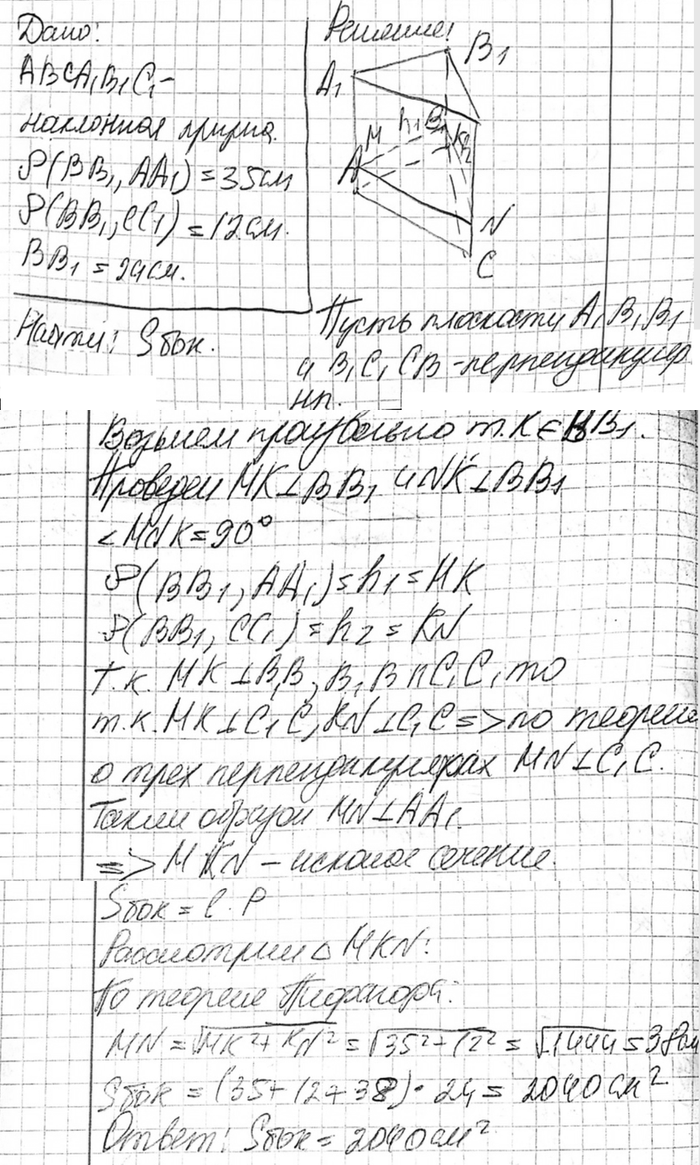 Дано:
ABCA₁B₁C₁ –
наклонная призма.
ρ(BB₁, AA₁) = 35см
ρ(BB₁, CC₁) = 12см.
BB₁ = 24см.
Найти: Sбок.
Решение:
B₁
A₁
M h₁ B K h₂
A
N
C
Пусть плоскости A₁B₁B₁
и B₁C₁CB – перпендикуляр
ны.
Возьмем произвольно т. K ∈ BB₁.
Проведем MK ⊥ BB₁ и NK ⊥ BB₁
∠MNK = 90°
ρ(BB₁, AA₁) = h₁ = MK
ρ(BB₁, CC₁) = h₂ = KN
т.к. MK ⊥ B₁B, B₁B п C₁C, то
т.к. MK ⊥ C₁C, KN ⊥ C₁C => по теореме
о трех перпендикулярах MN ⊥ C₁C.
Таким образом MN ⊥ AA₁.
=> MKN – искомое сечение.
Sбок = l · P
Рассмотрим △ MKN:
По теореме Пифагора:
MN = √MK² + KN² = √35² + 12² = √1444 = 38см
Sбок = (35 + 12 + 38) · 24 = 2040 см²
Ответ: Sбок = 2040 см²